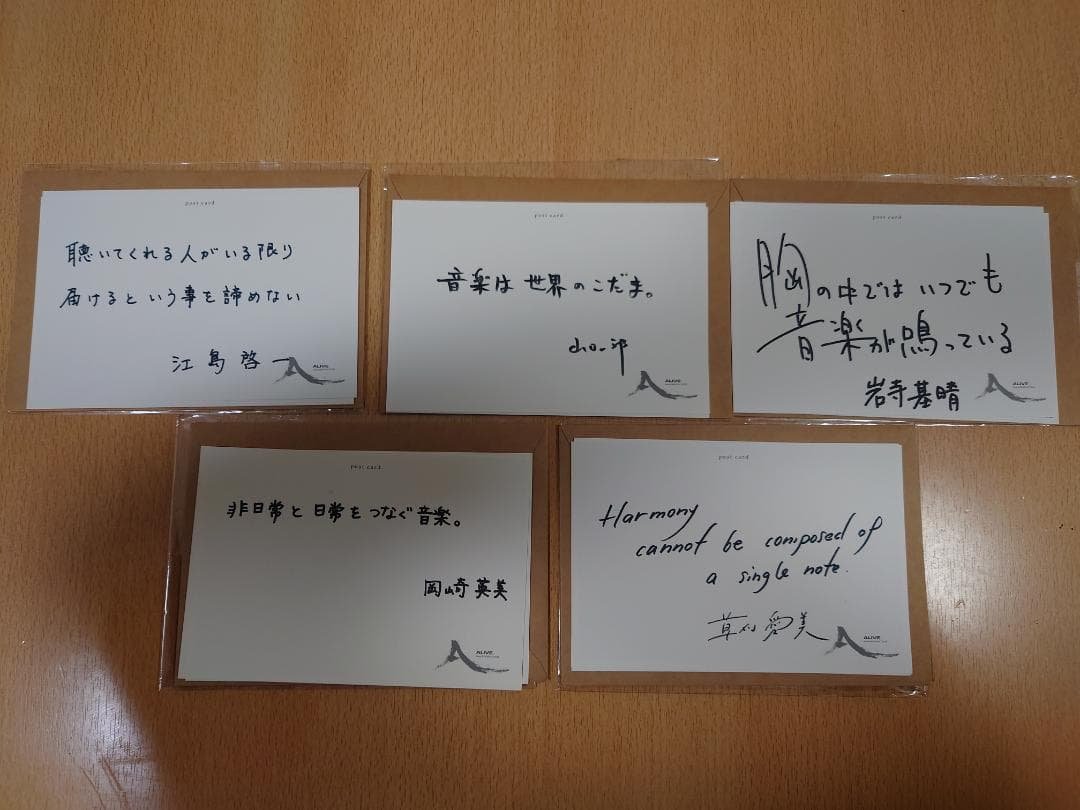 post card
聴いてくれる人がいる限り
届けるという事を諦めない
江島啓
ALIVE
post card
音楽は世界のこだま。
ALIVE
post card
胸の中ではいつでも
音楽が鳴っている
岩寺基晴
ALIVE
post card
非日常と日常をつなぐ音楽。
岡崎英美
ALIVE
post card
Harmony
cannot be composed of
a single note.
草刈愛美
ALIVE